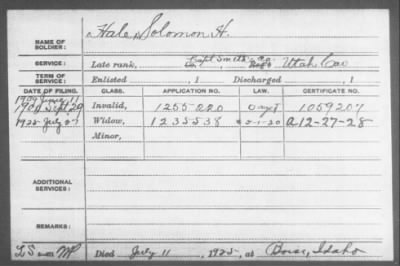 NAME OF SOLDIER: Hale, Solomon H.
SERVICE: Late rank, Capt Smith's Co. Utah Cav
TERM OF SERVICE: Enlisted , 1 Discharged , 1
DATE OF FILING. CLASS. APPLICATION NO. LAW. CERTIFICATE NO.
Sept 29 Invalid, 1255220 1059207
1925 July 27 Widow, 1235538 5-1-20 A12-27-28
Minor,
ADDITIONAL SERVICES:
REMARKS:
Died July 11 , 1925, at Boise, Idaho